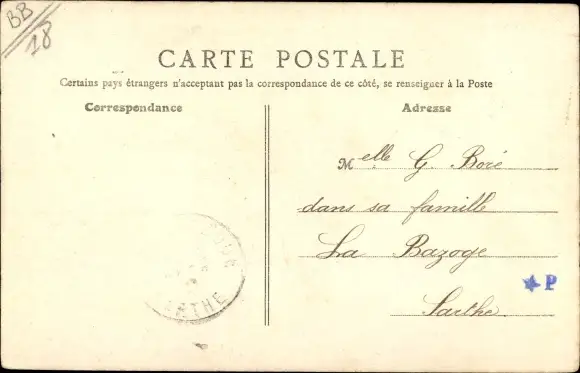 BB
18
CARTE POSTALE
Certains pays étrangers n'acceptant pas la correspondance de ce côté, se renseigner à la Poste
Correspondance
Adresse
Melle G Boré
dans sa famille
La Bazoge
Sarthe
P